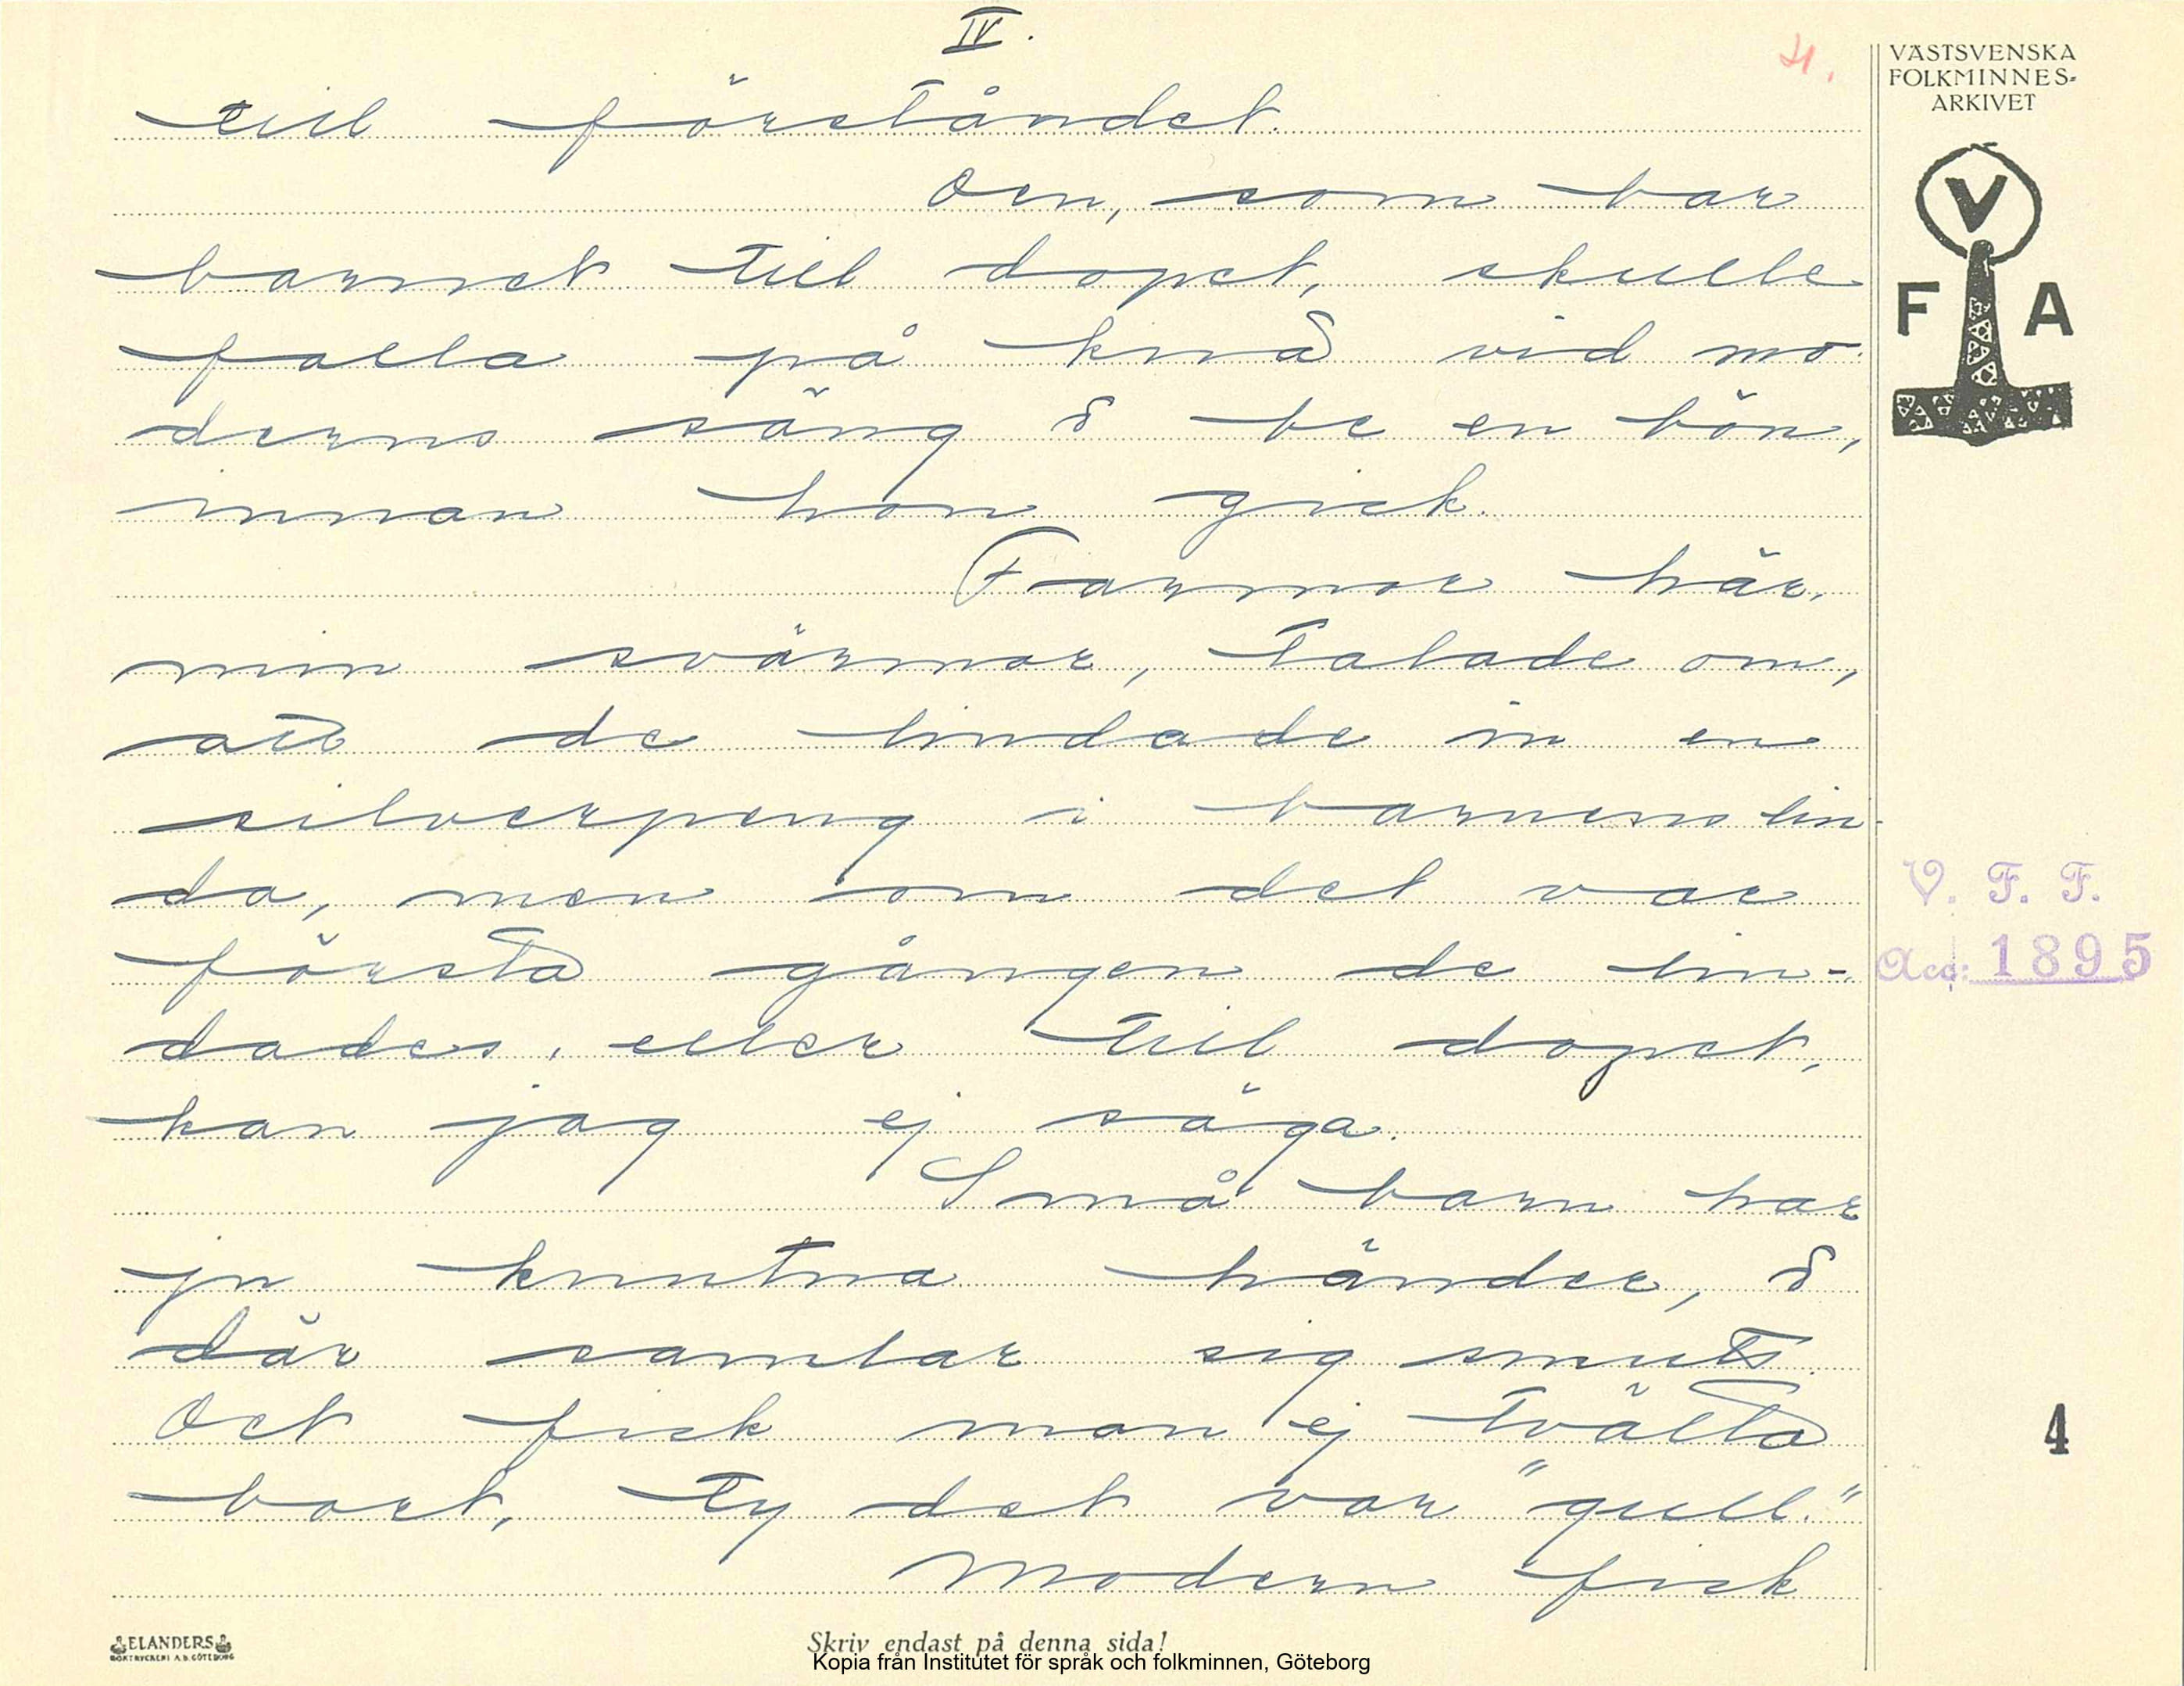 IV.
4.
till förståndet.
Den, som bar
barnet till dopet, skulle
falla på knä vid mo-
derns säng & be en bön,
innan hon gick.
Farmor här,
min svärmor, talade om,
att de lindade in en
silverpeng i barnens lin-
da, men om det var
första gången de lin-
dades, eller till dopet,
kan jag ej säga.
Små barn har
ju knutna händer, &
där samlar sig smuts.
Det fick man ej tvätta
bort, ty det var "gull."
Modern fick
VÄSTSVENSKA
FOLKMINNES-
ARKIVET
V
F A
V. F. F.
Acc: 1895
4
ELANDERS
BOKTRYCKERI A.B. GÖTEBORG
Skriv endast på denna sida!
Kopia från Institutet för språk och folkminnen, Göteborg